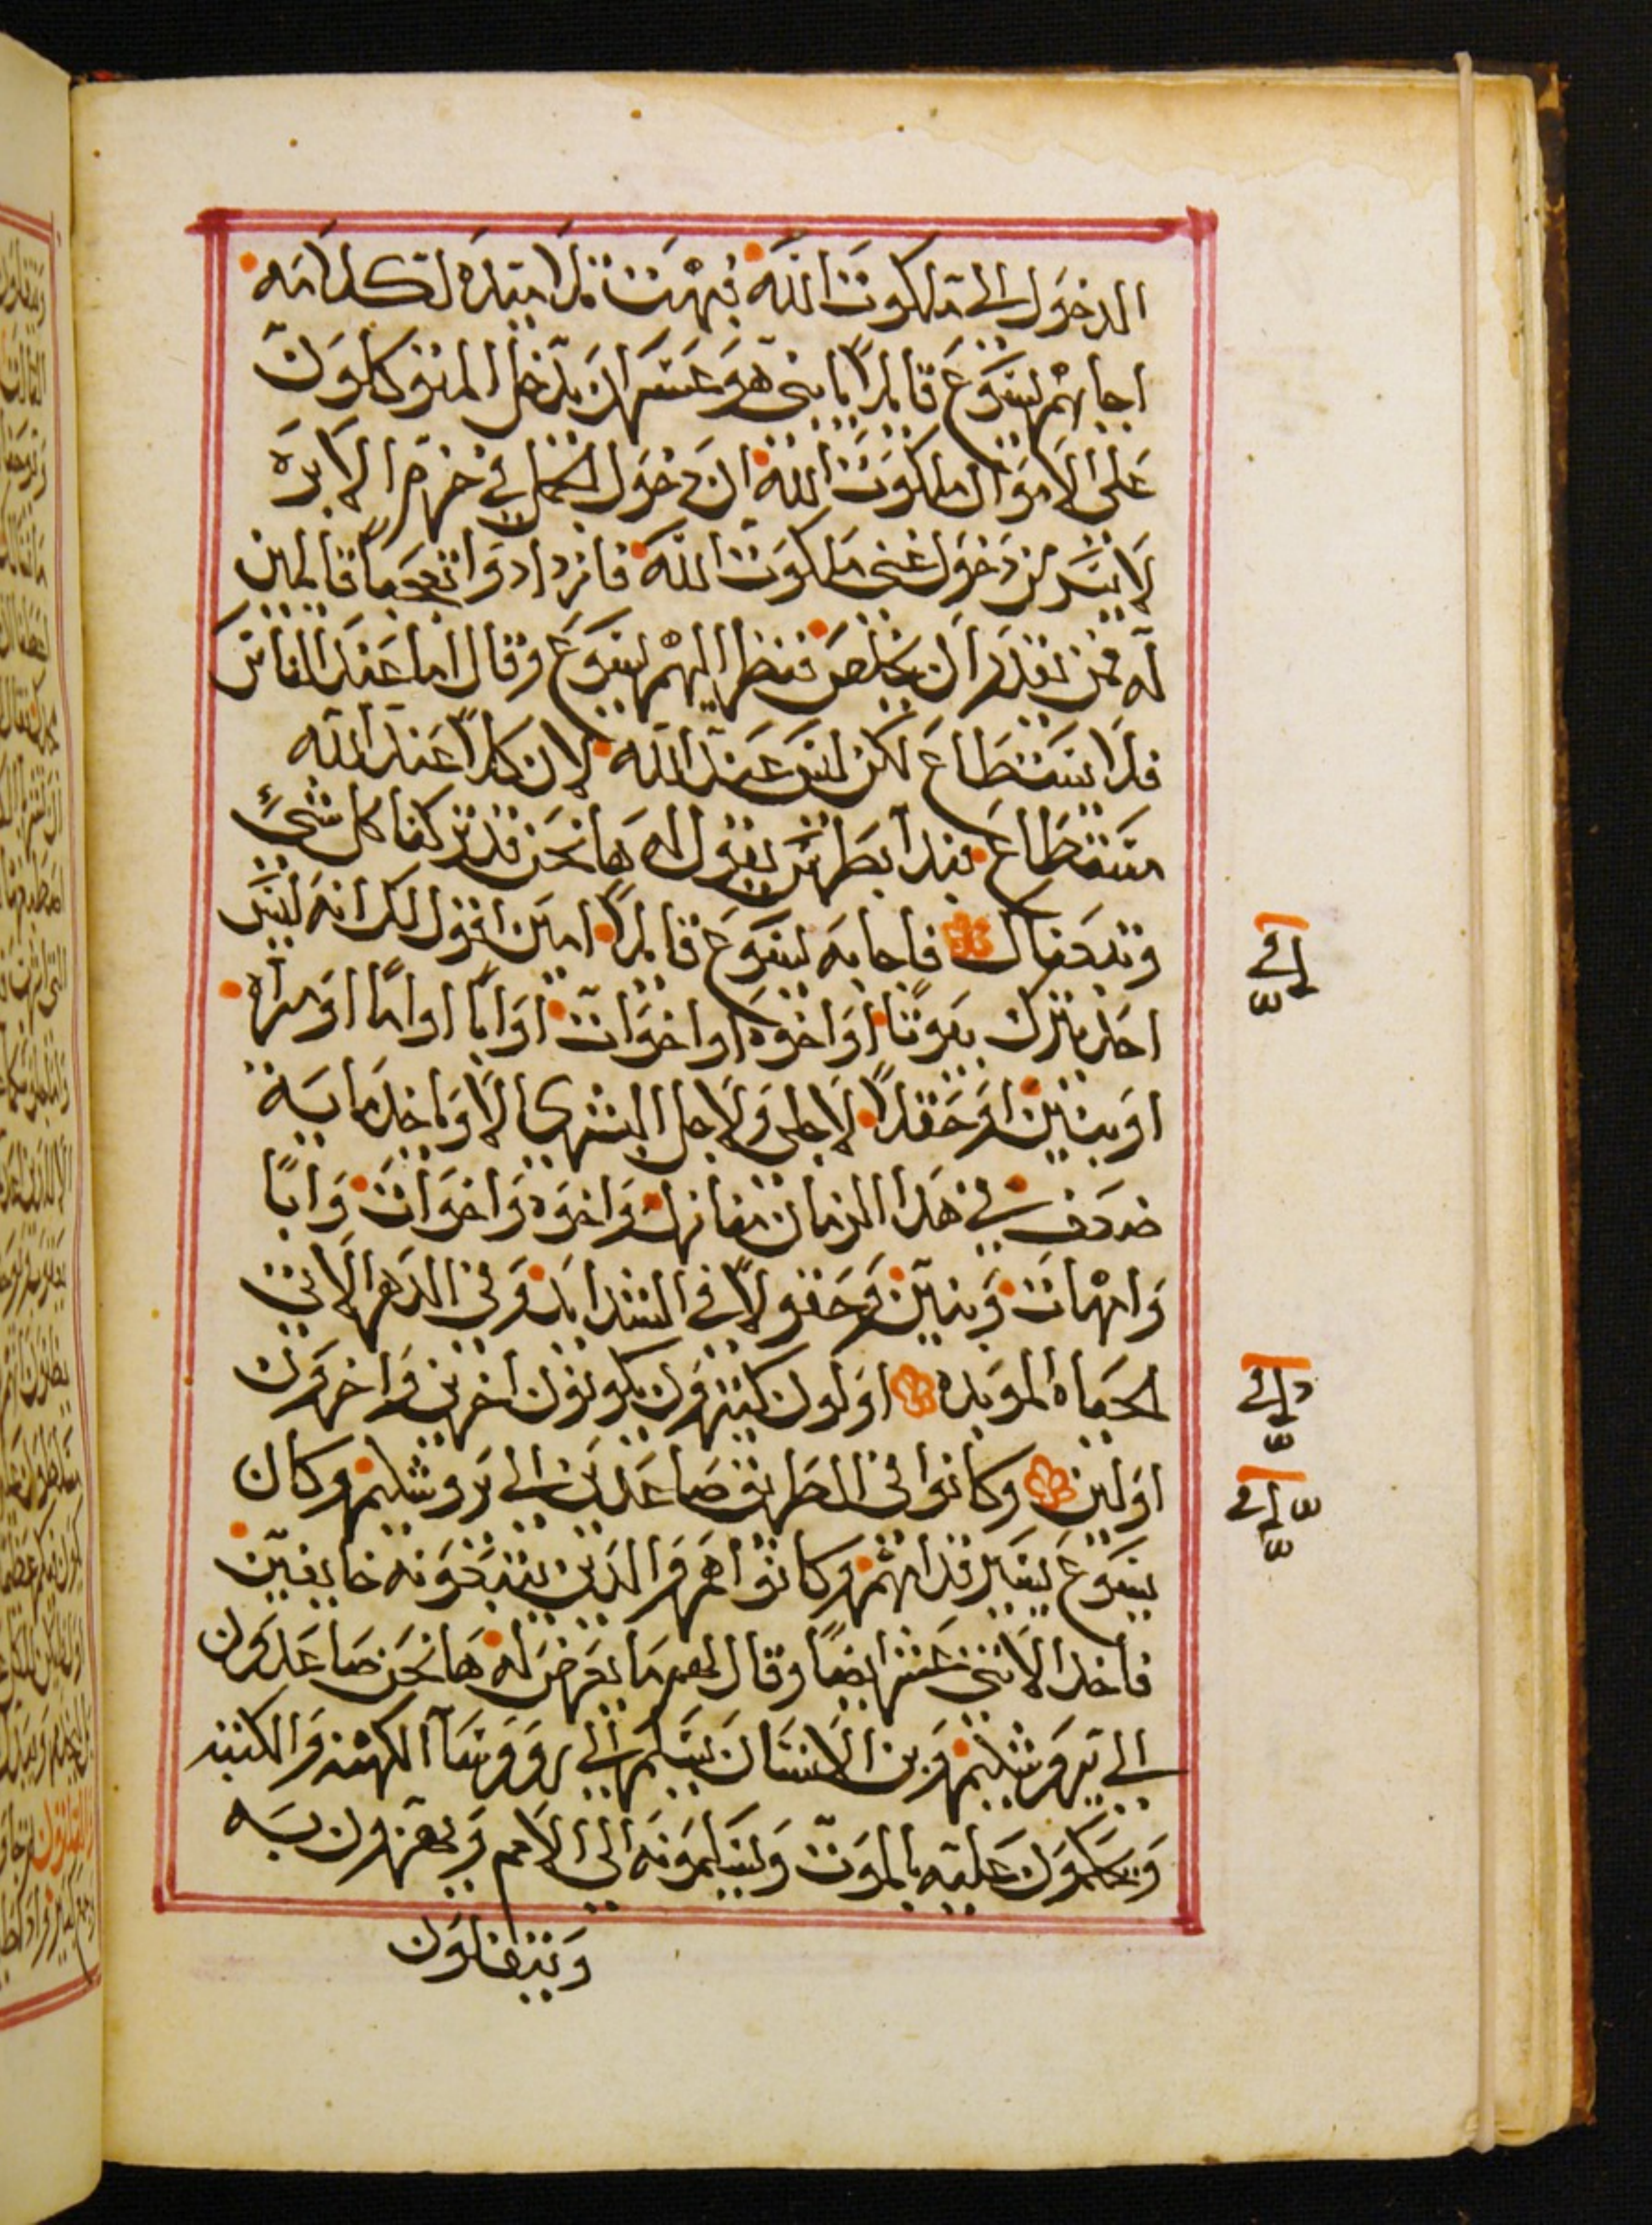 الدخول الى ملكوت الله فبهت تلاميذه لكلامه
اجابهم ليسوع قايلاً يا بني هو عسر ان يدخل المتوكلون
على الاموال ملكوت الله ان دخول الجمل في خرم الابره
لايسر من دخول غني ملكوت الله فازدادوا تعجباً قايلين
له فمن يقدر ان يخلص فنظر اليهم ليسوع وقال اما عند الناس
فلا يستطاع لكن ليس عند الله لان كلاً عند الله
مستطاع فبدا بطرس يقول له ها نحن قد تركنا كل شيء
وتبعناك فاجابه ليسوع قايلاً امين اقول لكم انه ليس
احد يترك بيوتًا او اخوه او اخوات او ابًا او امًا او مراه
او بنين او حقلاً لاجلي ولاجل البشرى الا وياخد مايه
ضعف في هذا الزمان منازل واخوه واخوات وابًا
وامهات وبنين وحقولاً في الشدايد وفي الدهر الاتي
الحياه الموبده اولون كثيرون يكونون اخرين واخرون
اولين وكانوا في الطريق صاعدين الى يروشليم وكان
يسوع يسير قدامهم وكانوا هم والدين يتبعونه خايفين
فاخد الاثني عشر ايضًا وقال لهم ما يعرض له ها نحن صاعدون
الى يروشليم وبن الانسان يسلم الى رووسآ الكهنه والكتبه
ويحكمون عليه بالموت ويسلمونه الى الامم ويهزون به
ويتفلون